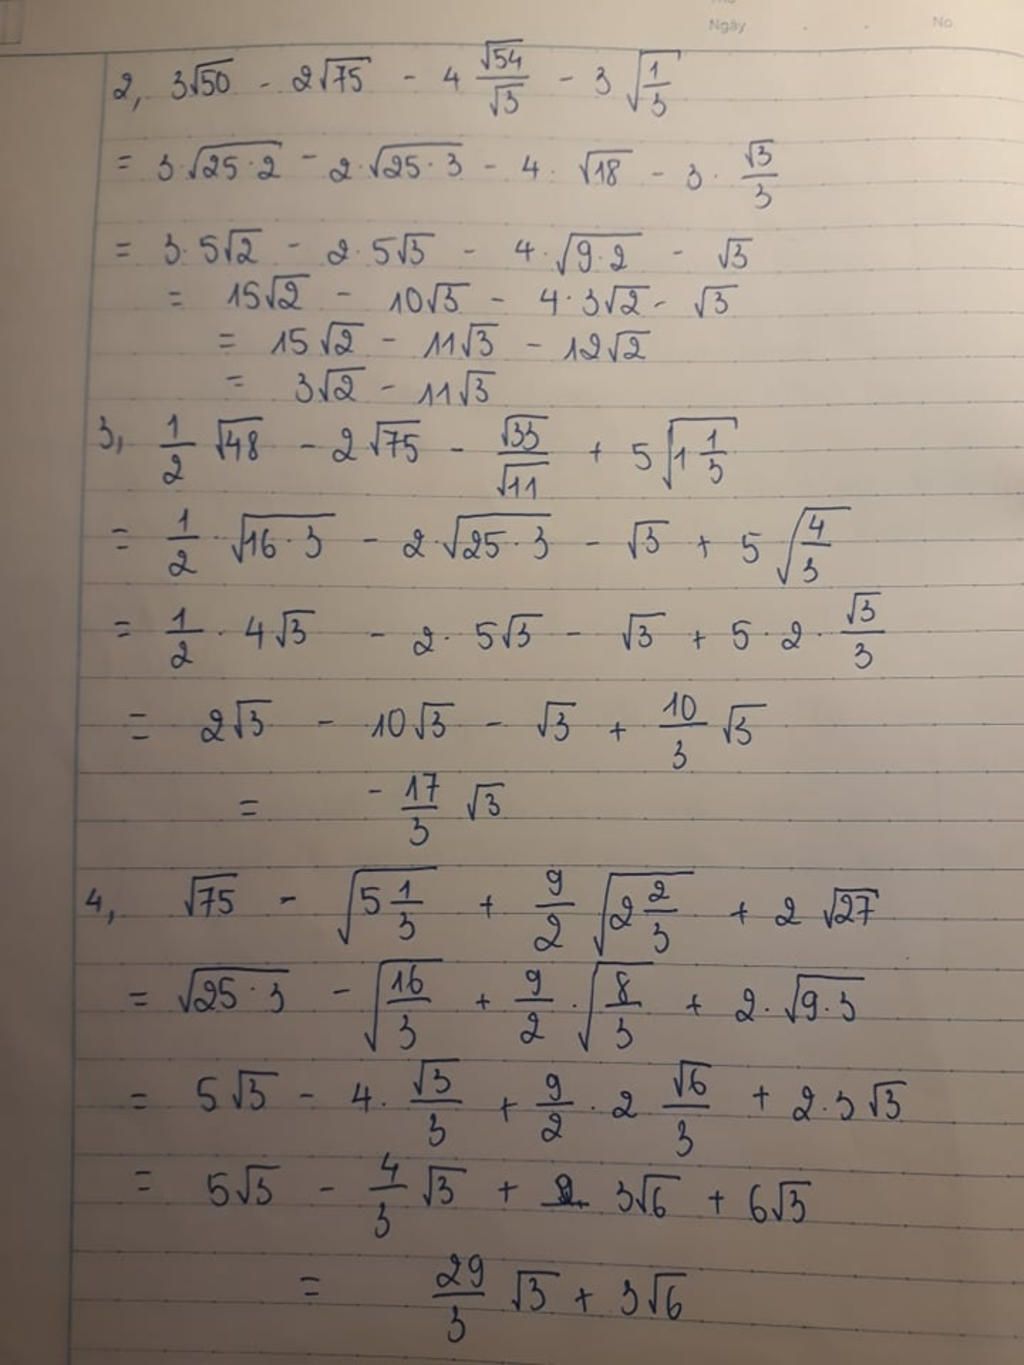 Ngày . . No
2, 3√50 - 2√75 - 4 √54/√3 - 3 √(1/3)
= 3·√(25·2) - 2·√(25·3) - 4· √18 - 3· √3/3
= 3·5√2 - 2·5√3 - 4·√(9·2) - √3
= 15√2 - 10√3 - 4·3√2 - √3
= 15√2 - 11√3 - 12√2
= 3√2 - 11√3
3, 1/2 √48 - 2√75 - √33/√11 + 5√(1 1/3)
= 1/2 ·√(16·3) - 2·√(25·3) - √3 + 5 √(4/3)
= 1/2 · 4√3 - 2· 5√3 - √3 + 5·2· √3/3
= 2√3 - 10√3 - √3 + 10/3 √3
= -17/3 √3
4, √75 - √(5 1/3) + 9/2 √(2 2/3) + 2 √27
= √(25·3) - √(16/3) + 9/2 ·√(8/3) + 2·√(9·3)
= 5√3 - 4· √3/3 + 9/2 · 2 √6/3 + 2·3√3
= 5√3 - 4/3 √3 + 3√6 + 6√3
= 29/3 √3 + 3√6